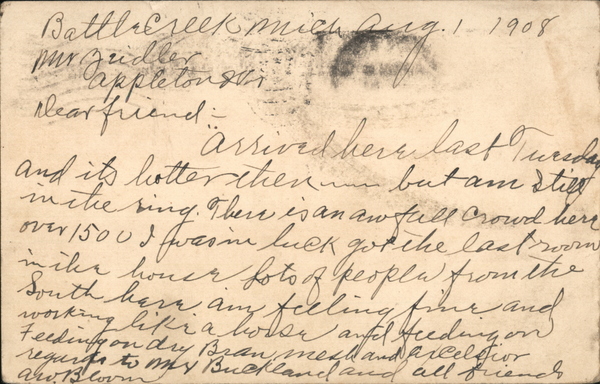 Battle Creek Mich Aug. 1 1908
Mr Zeidler
Appleton Wis
Dear friend:-
Arrived here last Tuesday
and its hotter then --- but am still
in the ring. There is an awfull crowd here
over 1500 I was in luck got the last room
in the house lots of people from the
South here. am feeling fine and
working like a horse and feeding on
Feeding on dry Bran, mesh and excelsior
regards to Mr Buckland and all friends
Bloom